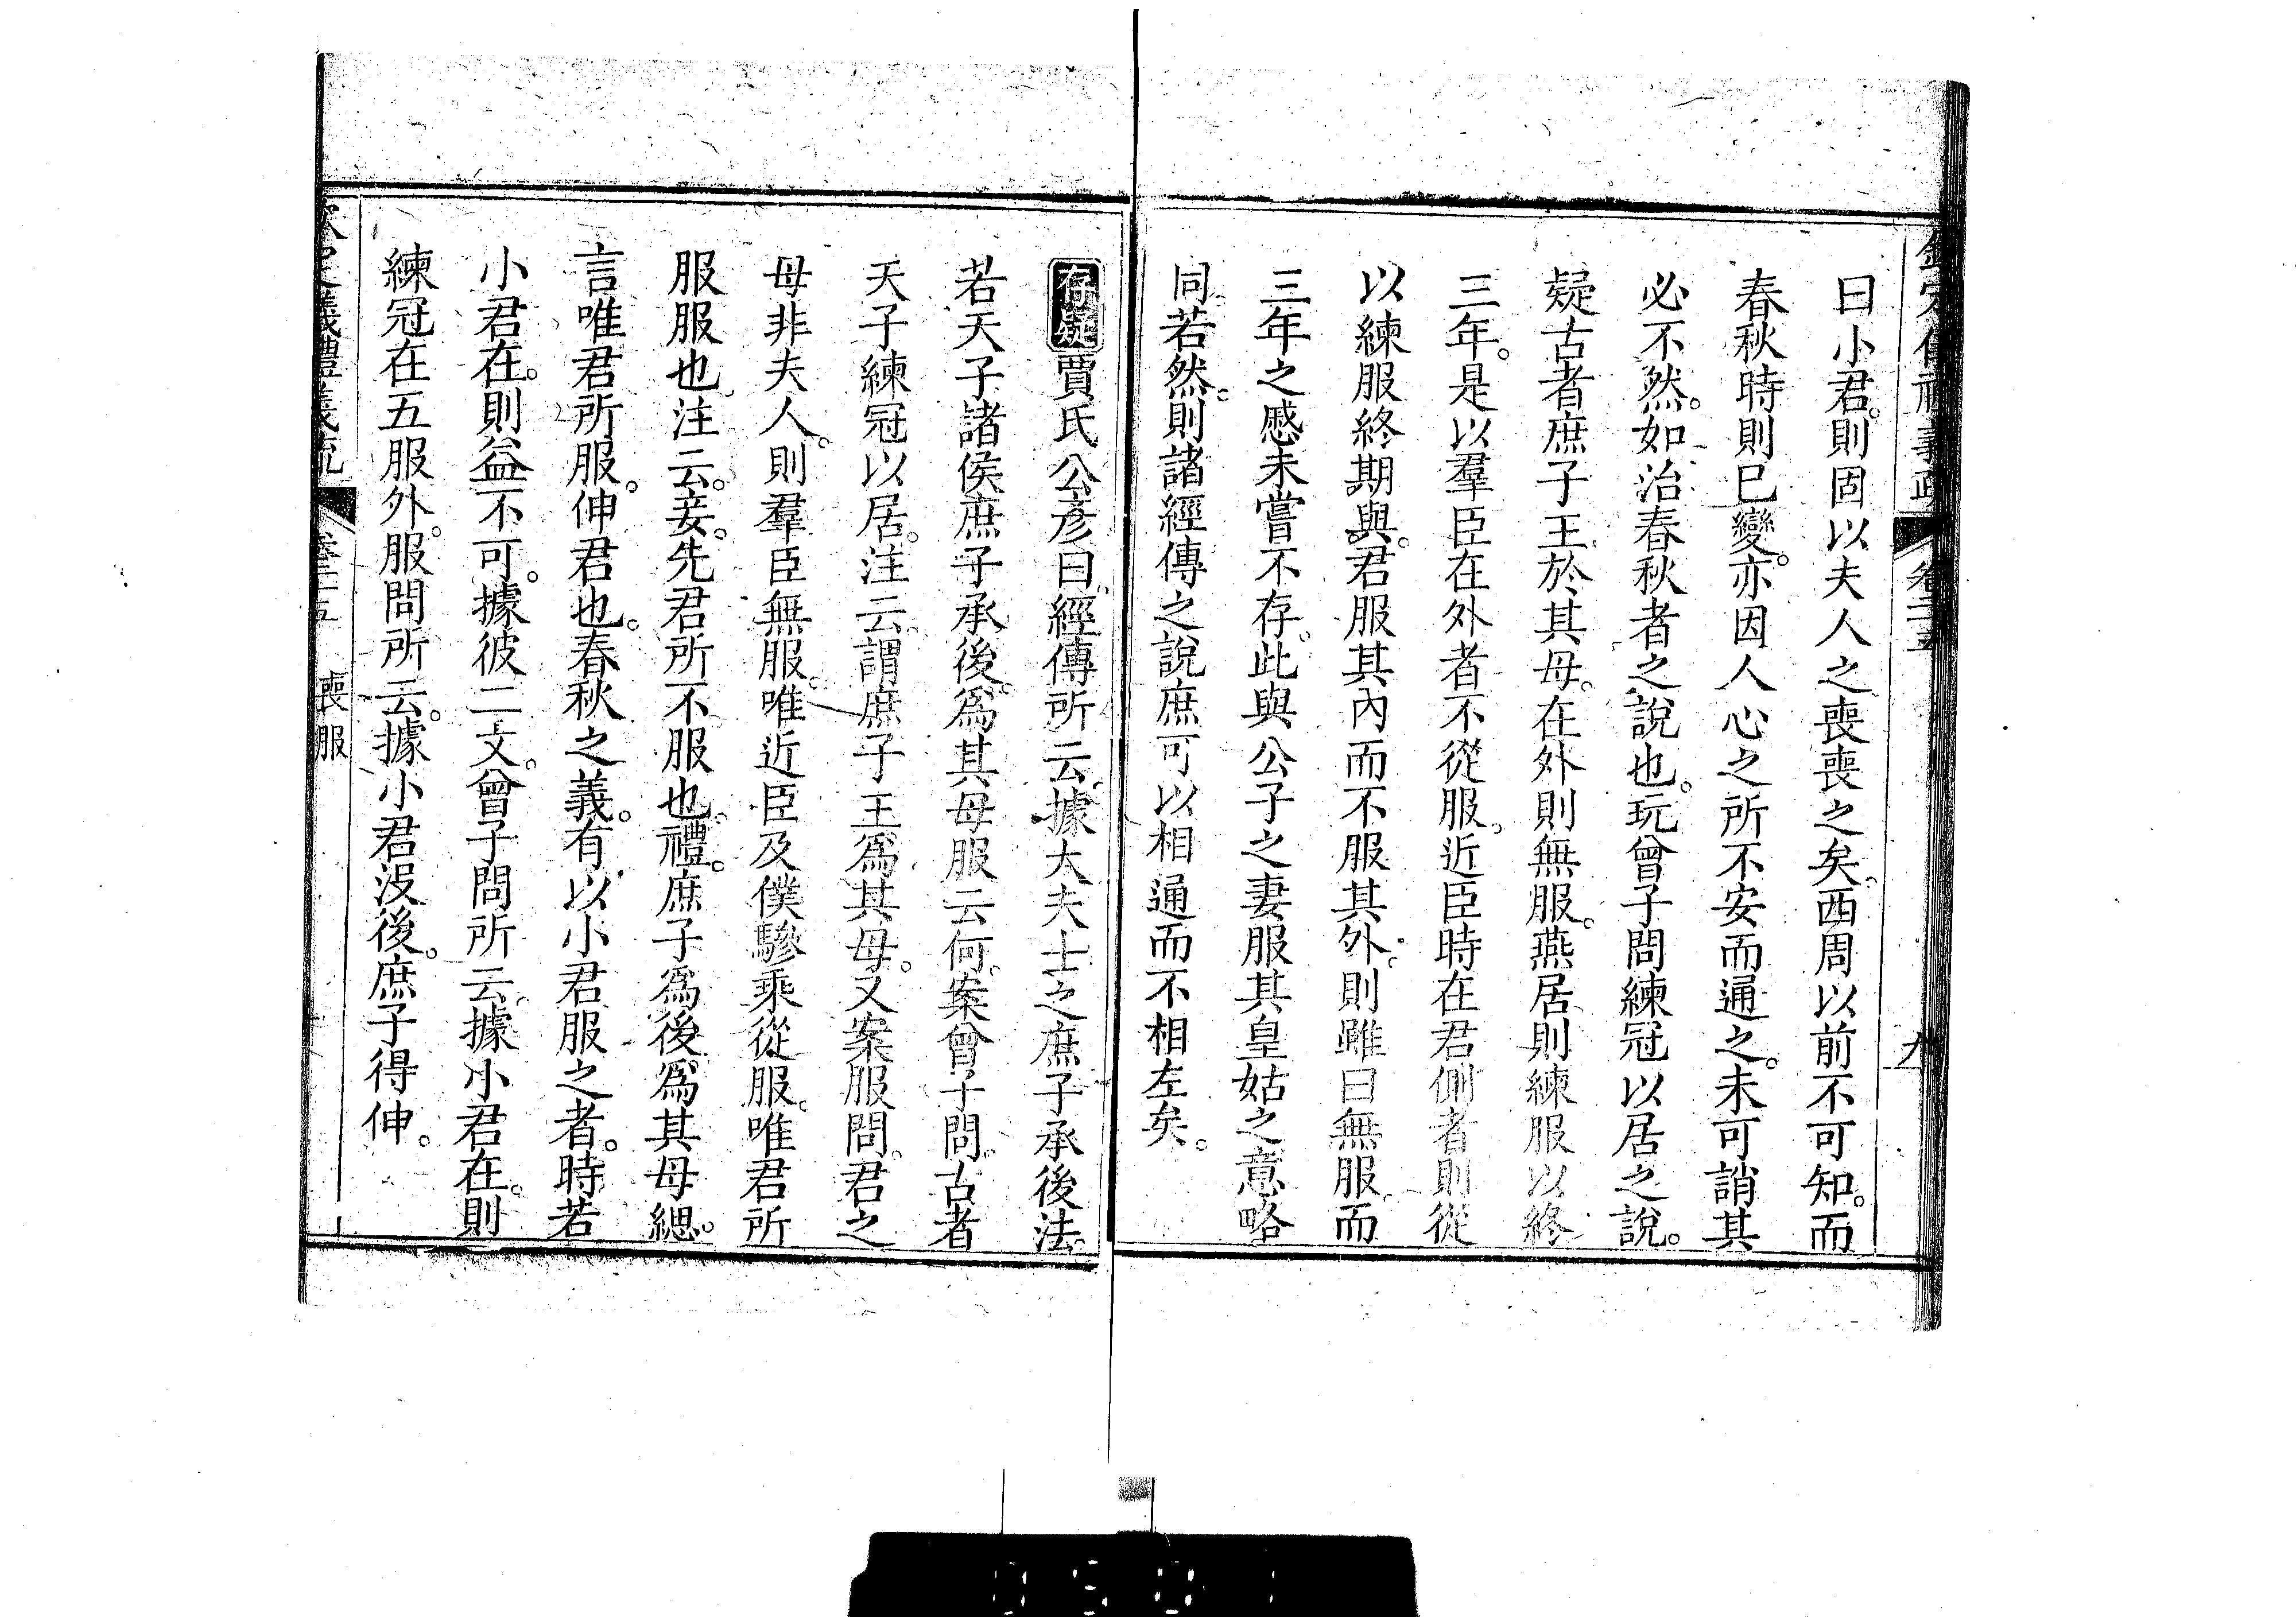 欽定儀禮義疏 卷二十五 九
曰小君。則固以夫人之喪喪之矣。西周以前不可知。而
春秋時則已變。亦因人心之所不安而通之。未可誚其
必不然。如治春秋者之說也。玩曾子問練冠以居之說。
疑古者庶子王於其母。在外則無服。燕居則練服以終
三年。是以羣臣在外者不從服。近臣時在君側者則從
以練服終期與。君服其內而不服其外。則雖曰無服。而
三年之慼未嘗不存。此與公子之妻服其皇姑之意略
同。若然。則諸經傳之說庶可以相通而不相左矣。
存疑賈氏公彥曰。經傳所云。據大夫士之庶子承後法。
若天子諸侯庶子承後。爲其母服云何。案曾子問。古者
天子練冠以居。注云。謂庶子王爲其母。又案服問。君之
母非夫人。則羣臣無服。唯近臣及僕驂乘從服。唯君所
服服也。注云。妾。先君所不服也。禮。庶子爲後。爲其母緦。
言唯君所服。伸君也。春秋之義。有以小君服之者。時若
小君在。則益不可。據彼二文。曾子問所云。據小君在。則
練冠在五服外。服問所云。據小君沒後。庶子得伸。
欽定儀禮義疏 卷二十五 喪服
0501